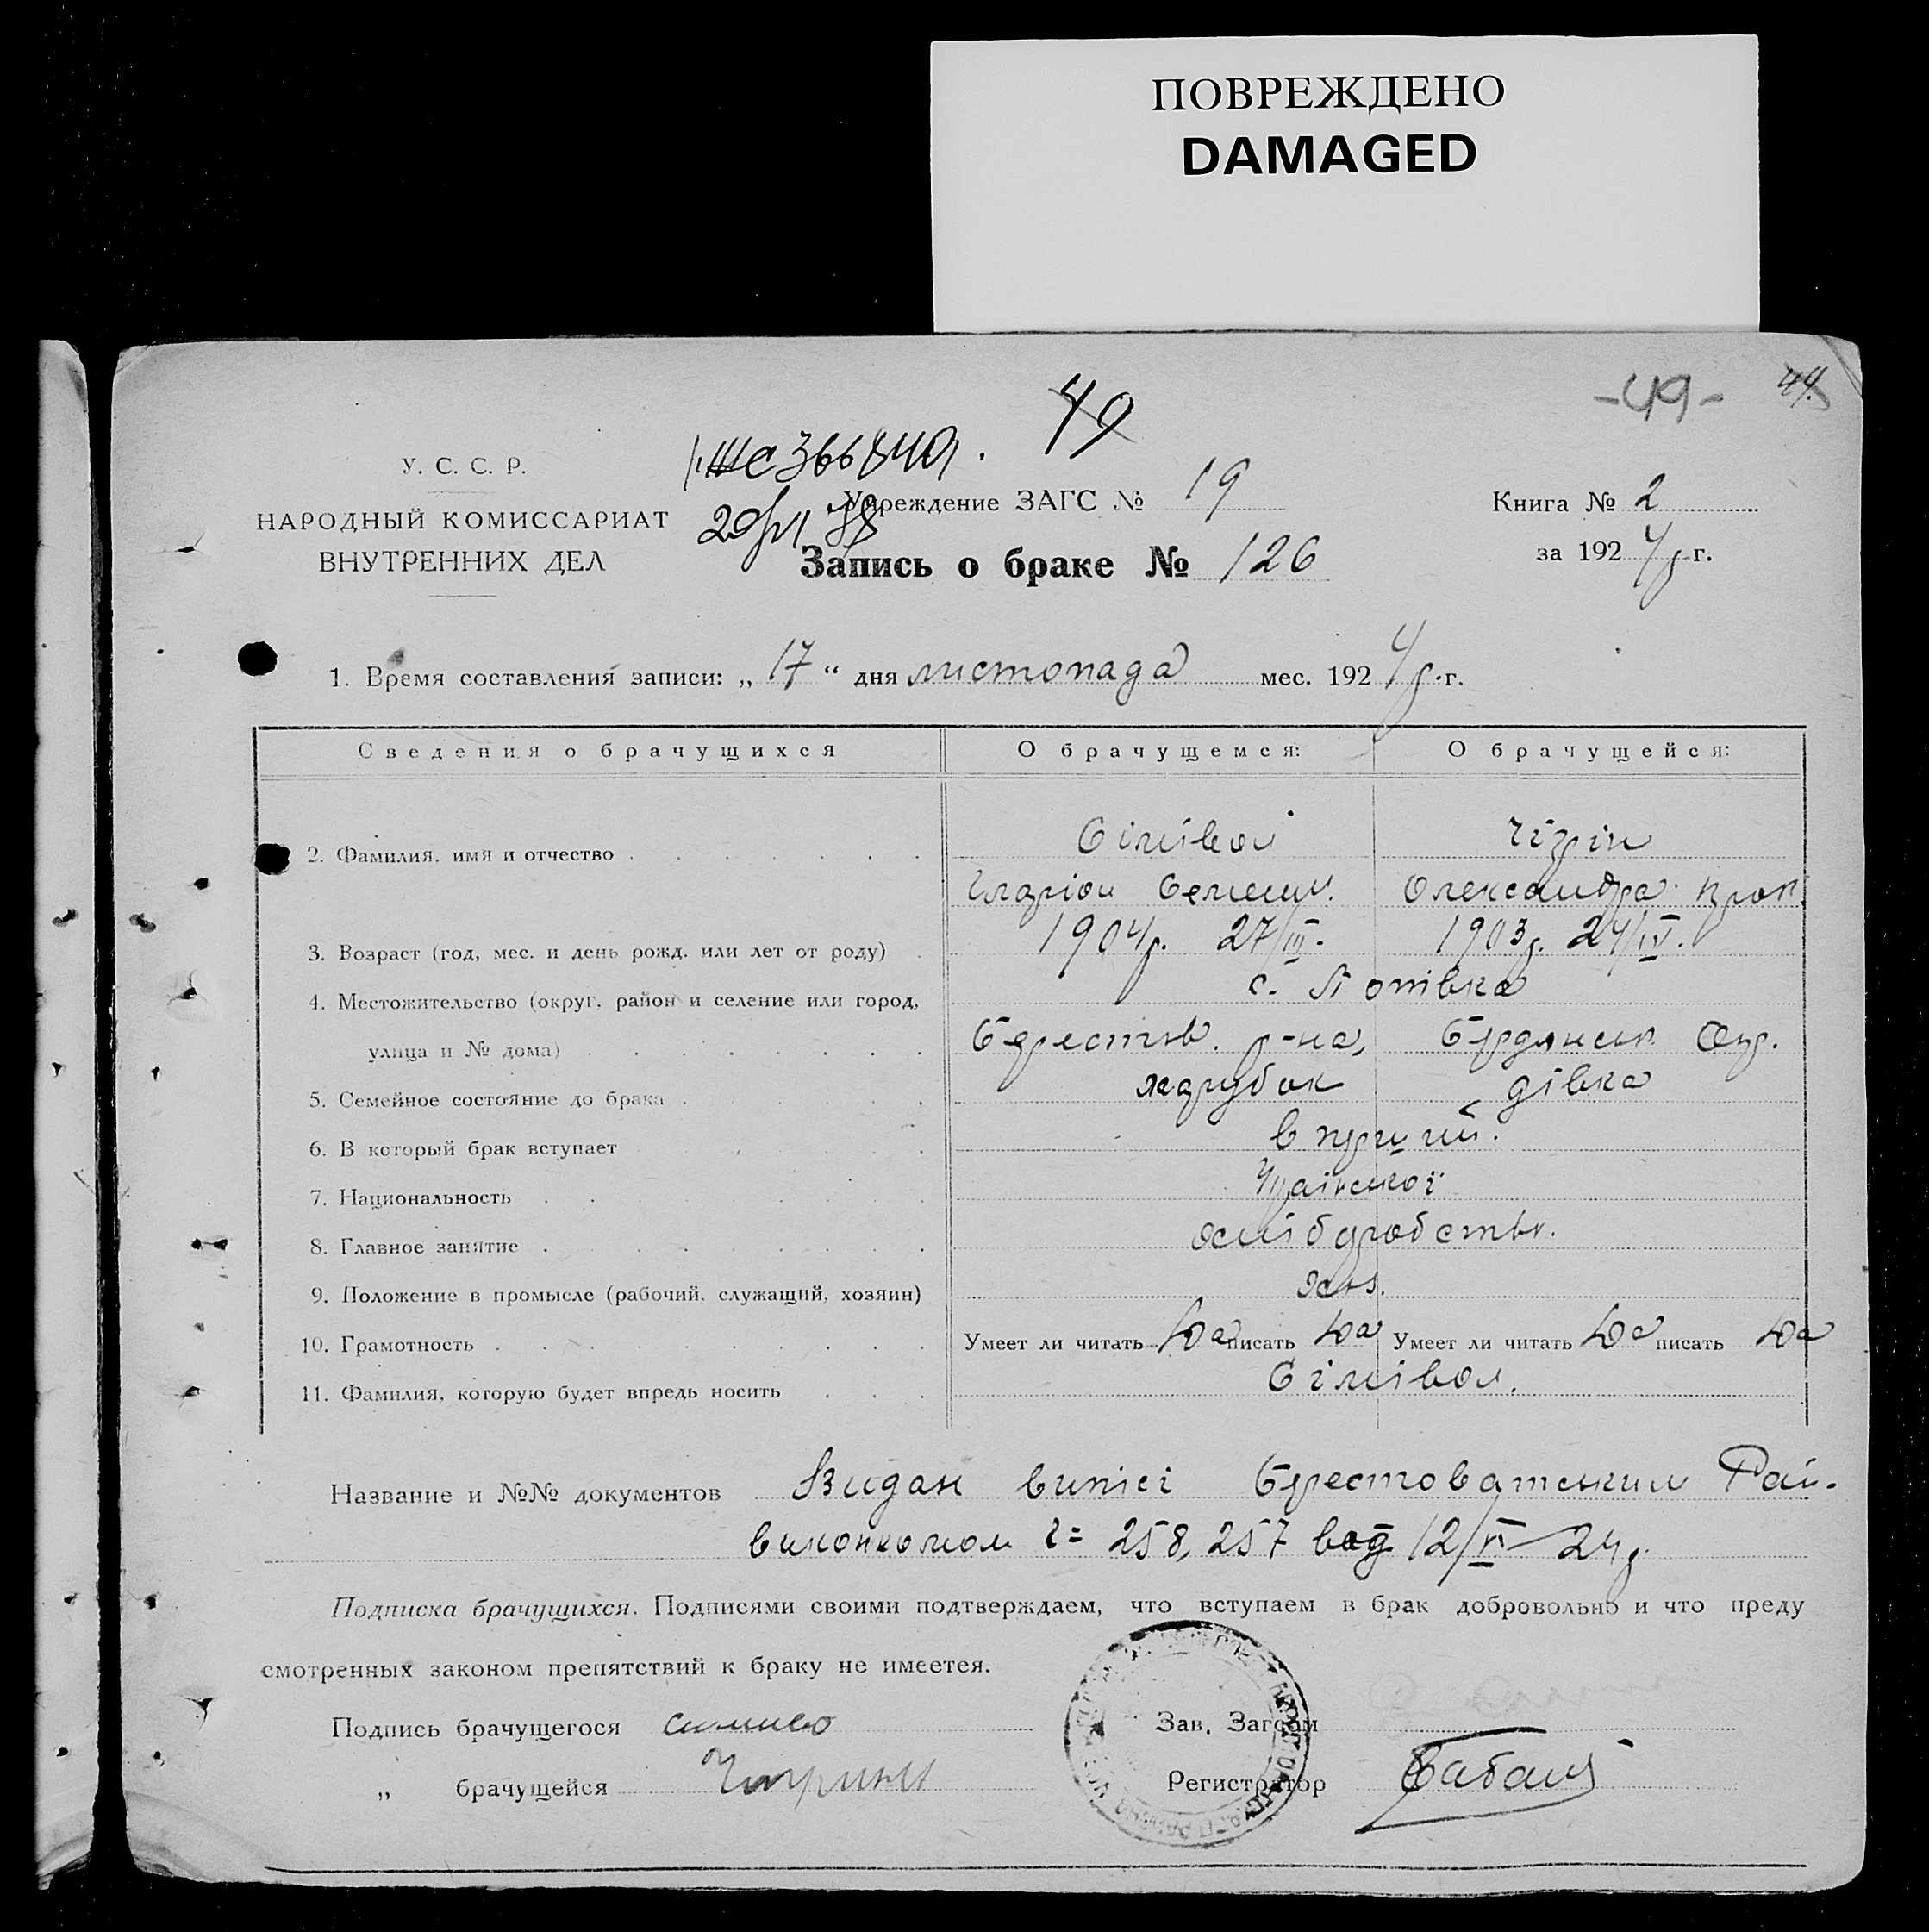 ПОВРЕЖДЕНО
DAMAGED
49
-49- 44.
У. С. С. Р.
НАРОДНЫЙ КОМИССАРИАТ
ВНУТРЕННИХ ДЕЛ
Учреждение ЗАГС № 19
Книга № 2
Запись о браке № 126
за 1924р г.
1. Время составления записи: „ 17 “ дня листопада мес. 1924р. г.
Сведения о брачущихся О брачущемся: О брачущейся:
2. Фамилия, имя и отчество
Сімівол
Чігрін
Іларіон Семен.
Олександра Прок.
3. Возраст (год, мес. и день рожд. или лет от роду) 1904р. 27/III. 1903р. 24/IV.
4. Местожительство (округ, район и селение или город, с.
улица и № дома) Берестов. р-на, Бердянськ. Окр.
5. Семейное состояние до брака парубок дівка
6. В который брак вступает в перший.
7. Национальность
8. Главное занятие
9. Положение в промысле (рабочий, служащий, хозяин)
10. Грамотность Умеет ли читать да писать да Умеет ли читать да писать да
11. Фамилия, которую будет впредь носить Сімівол.
Название и №№ документов Видан виписі Берестоватським Рай-
виконкомом 258, 257 від 12/VI 24р.
Подписка брачущихся. Подписями своими подтверждаем, что вступаем в брак добровольно и что преду
смотренных законом препятствий к браку не имеется.
Подпись брачущегося
Зав. Загсом
„ брачущейся
Регистратор